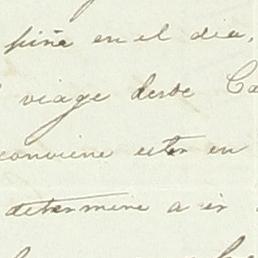 piña en el dia,
viage desde Ca
conviene ester en
determine a ir